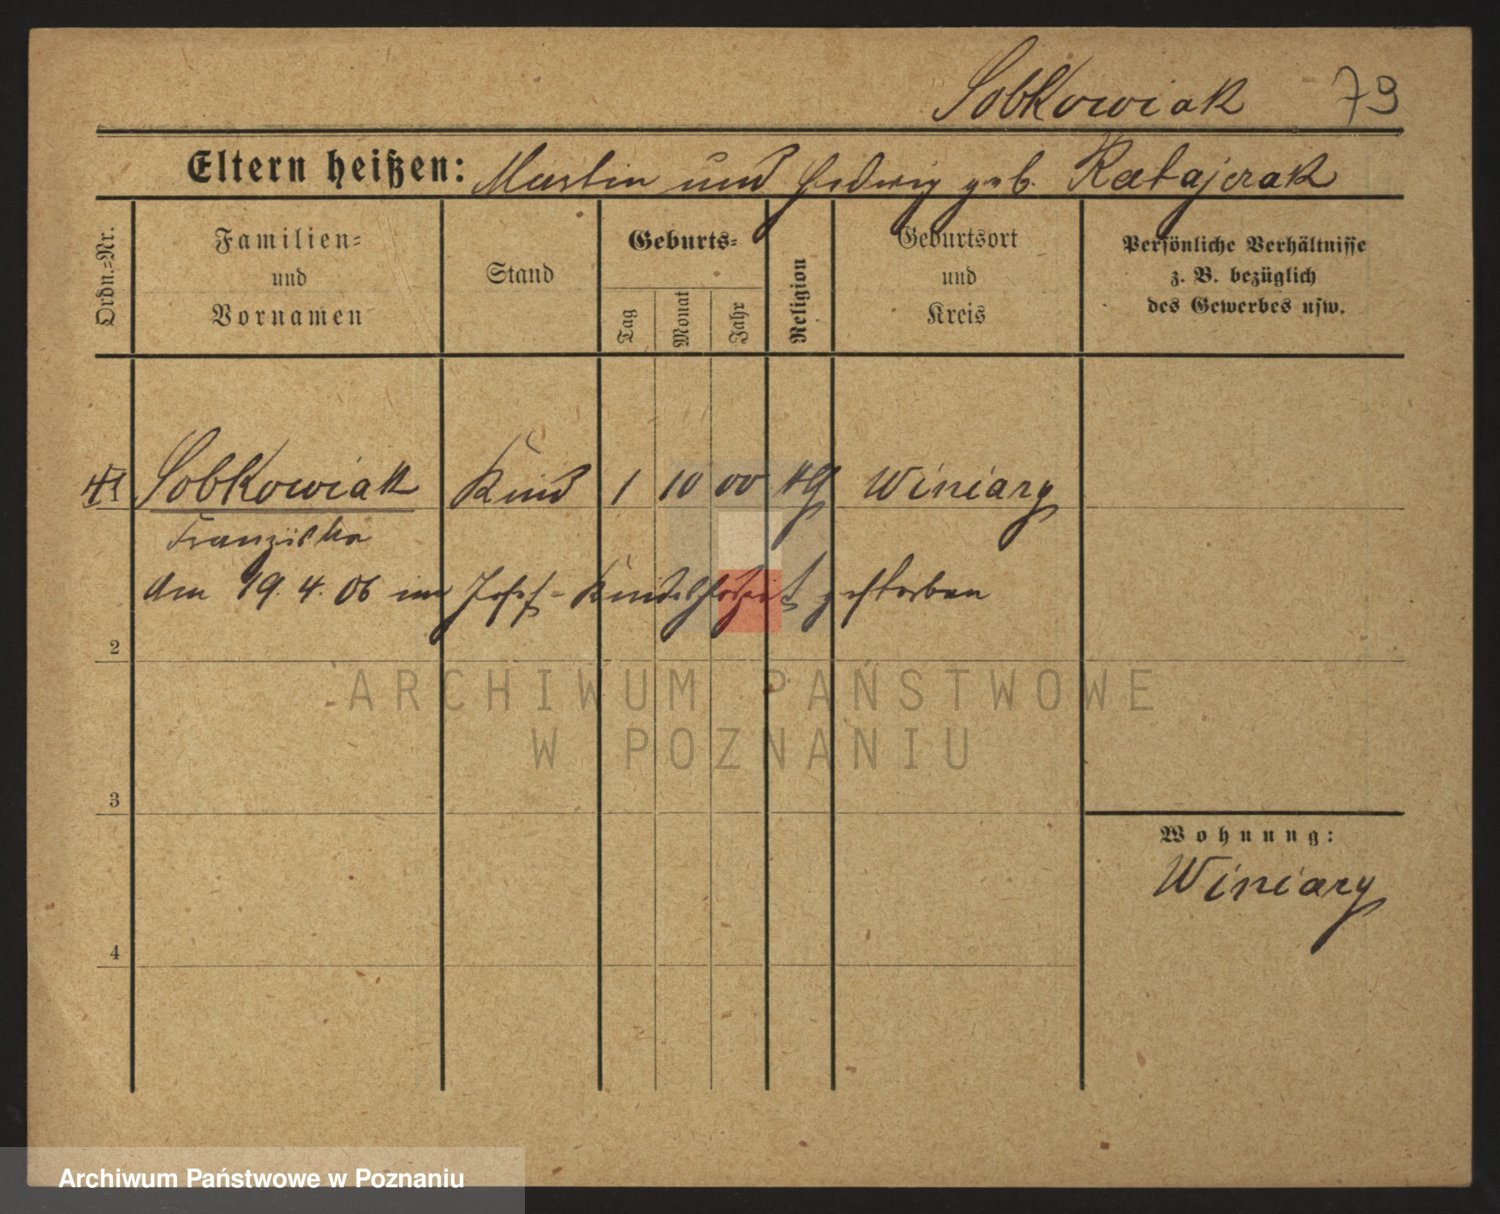 Sobkowiak 79
Eltern heißen: Martin und Hedwig geb. Ratajczak
Ordn.-Nr.
Familien-
und
Vornamen
Stand
Geburts-
Tag
Monat
Jahr
Religion
Geburtsort
und
Kreis
Persönliche Verhältnisse
z. B. bezüglich
des Gewerbes usw.
1 Sobkowiak Kind 1 10 00 kg Winiary
Franziska
am 19. 4. 06 im Josef- gestorben
2
ARCHIWUM PAŃSTWOWE
W POZNANIU
3
Wohnung:
Winiary
4
Archiwum Państwowe w Poznaniu